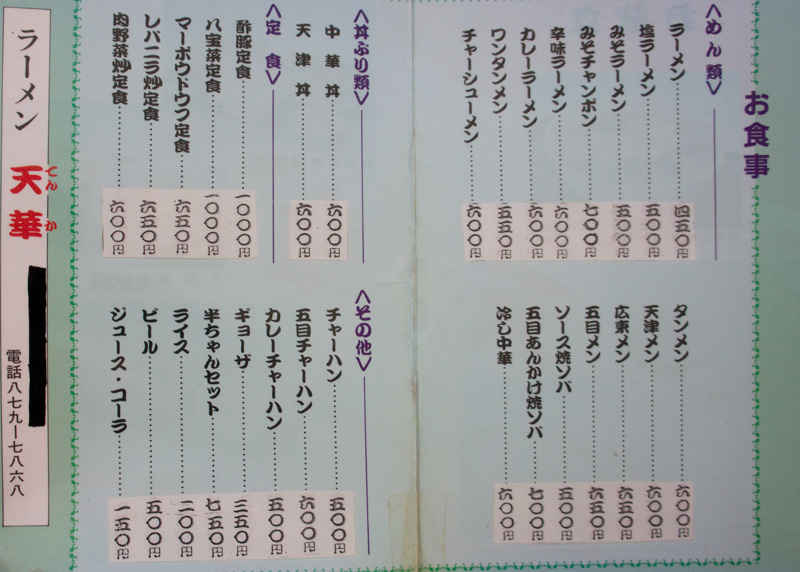 お食事
<めん類>
ラーメン 四五〇円
塩ラーメン 五五〇円
みそラーメン 五五〇円
みそチャンポン 七〇〇円
辛味ラーメン 六〇〇円
カレーラーメン 六〇〇円
ワンタンメン 五五〇円
チャーシューメン 六〇〇円
タンメン 六〇〇円
天津メン 六〇〇円
広東メン 六五〇円
五目メン 六五〇円
ソース焼ソバ 五〇〇円
五目あんかけ焼ソバ 七〇〇円
冷し中華 六〇〇円
<丼ぶり類>
中華丼 六〇〇円
天津丼 六〇〇円
<定食>
酢豚定食 一〇〇〇円
八宝菜定食 一〇〇〇円
マーボウドウフ定食 六五〇円
レバニラ炒定食 六五〇円
肉野菜炒定食 六〇〇円
<その他>
チャーハン 五〇〇円
五目チャーハン 六〇〇円
カレーチャーハン 五〇〇円
ギョーザ 三五〇円
半ちゃんセット 七五〇円
ライス 二〇〇円
ビール 五〇〇円
ジュース・コーラ 一五〇円
ラーメン 天華
てんか
電話八七九―七八六八